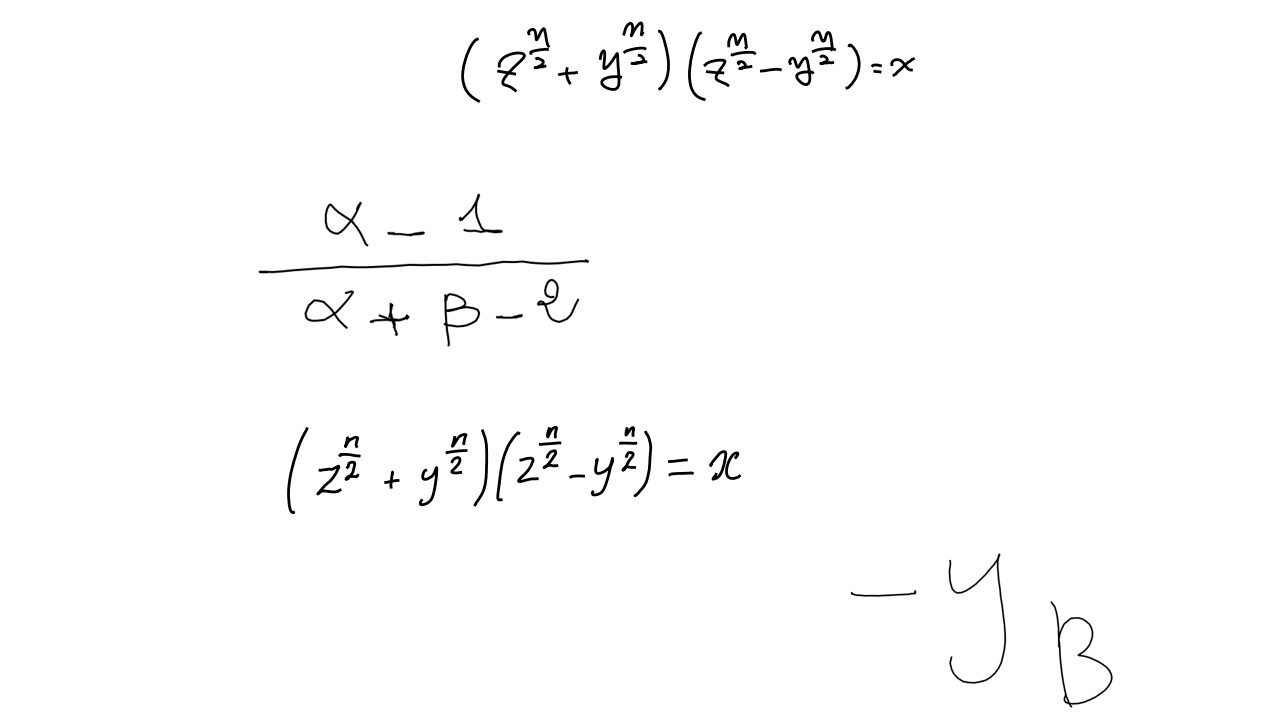 (z^{\frac{n}{2}} + y^{\frac{n}{2}})(z^{\frac{n}{2}} - y^{\frac{n}{2}}) = x
\frac{\alpha - 1}{\alpha + \beta - 2}
(z^{\frac{n}{2}} + y^{\frac{n}{2}})(z^{\frac{n}{2}} - y^{\frac{n}{2}}) = x
- y_{\beta}